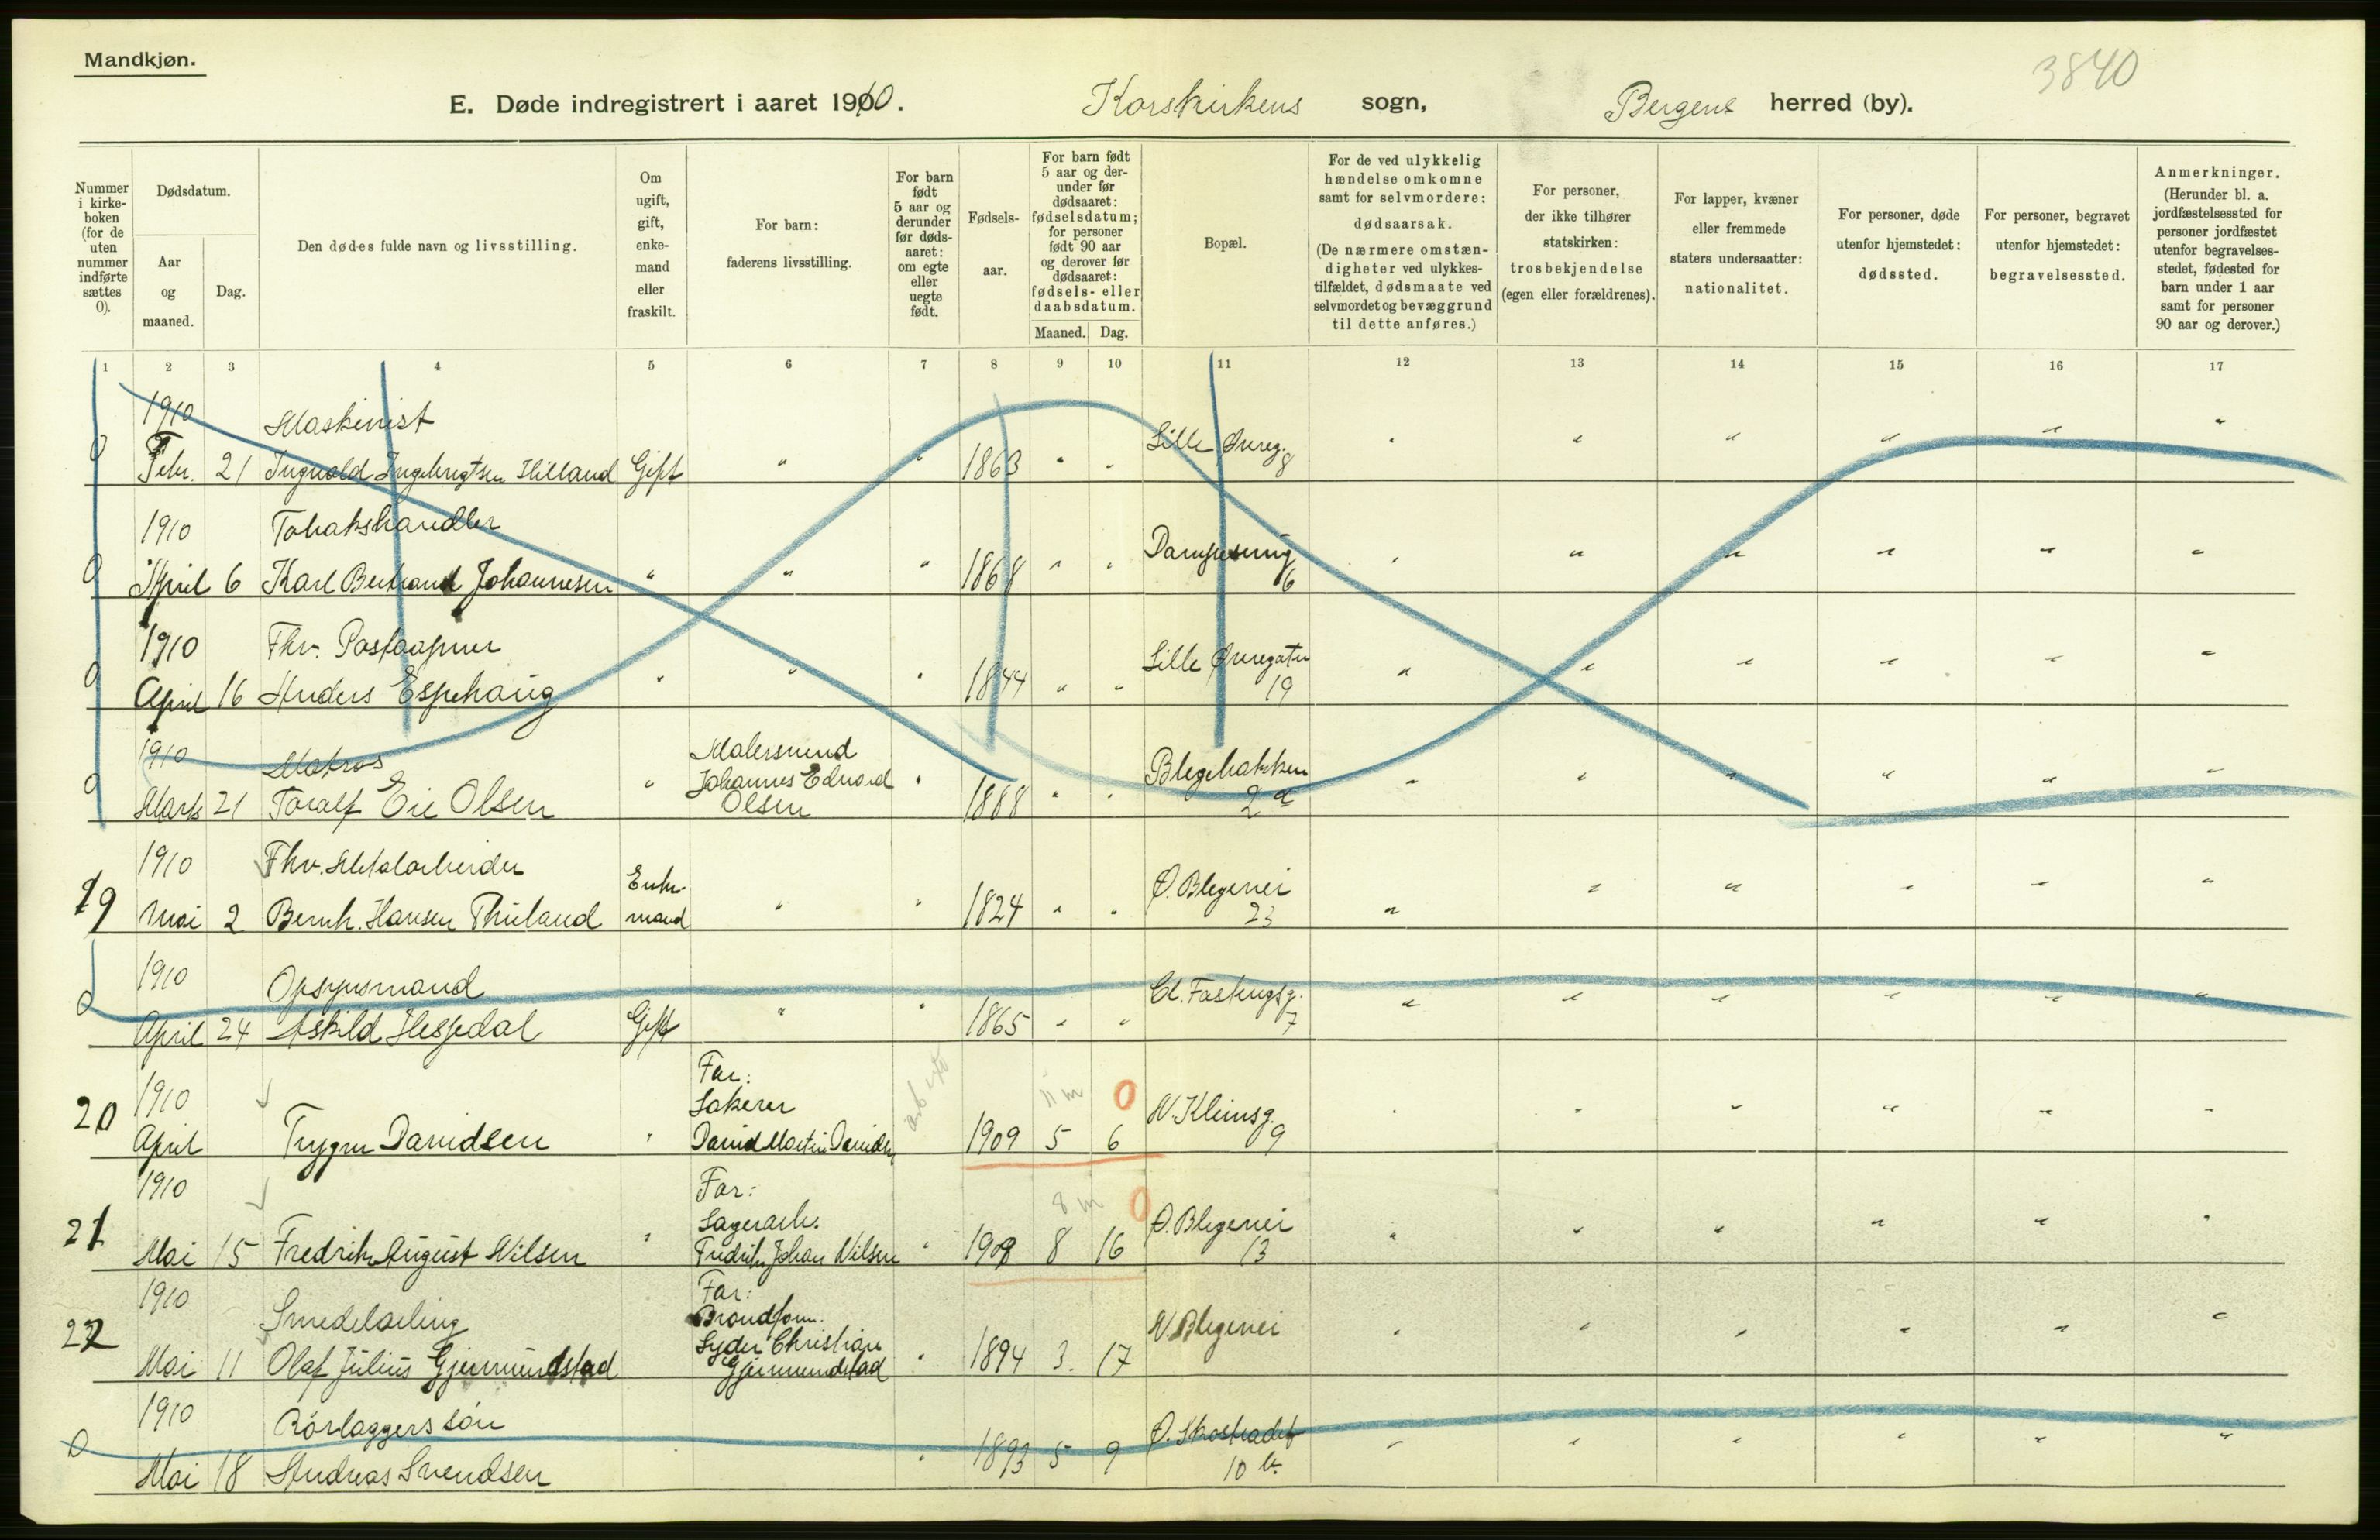 Mandkjøn.
3840
E. Døde indregistrert i aaret 1910. Korskirkens sogn, Bergens herred (by).
Nummer i kirkeboken (for de uten nummer indførte sættes 0).
Dødsdatum.
Aar og maaned.
Dag.
Den dødes fulde navn og livsstilling.
Om ugift, gift, enkemand eller fraskilt.
For barn: faderens livsstilling.
For barn født 5 aar og derunder før dødsaaret: om egte eller uegte født.
Fødselsaar.
For barn født 5 aar og derunder før dødsaaret: fødselsdatum; for personer født 90 aar og derover før dødsaaret: fødsels- eller daabsdatum.
Maaned. Dag.
Bopæl.
For de ved ulykkelig hændelse omkomne samt for selvmordere: dødsaarsak. (De nærmere omstændigheter ved ulykkestilfældet, dødsmaate ved selvmordet og bevæggrund til dette anføres.)
For personer, der ikke tilhører statskirken: trosbekjendelse (egen eller forældrenes).
For lapper, kvæner eller fremmede staters undersaatter: nationalitet.
For personer, døde utenfor hjemstedet: dødssted.
For personer, begravet utenfor hjemstedet: begravelsessted.
Anmerkninger. (Herunder bl. a. jordfæstelsessted for personer jordfæstet utenfor begravelsesstedet, fødested for barn under 1 aar samt for personer 90 aar og derover.)
1 2 3 4 5 6 7 8 9 10 11 12 13 14 15 16 17
1910 Maskinist Lille Øvreg.
0 Febr. 21 Ingvald Ingebrigtsen Hilland Gift " " 1863 " " 8
1910 Tobakshandler
0 April 6 Karl Bertrand Johannesen " " " 1868 " " 6
1910 Fhv. Postaapner Lille Øvregaten
0 April 16 Anders Espehaug " " " 1844 " " 19
1910 Matros Johannes Edvard Blegebakken
0 Marts 21 Toralf Olsen " Olsen " 1888 " " 2 a
1910 Fhv. Metalarbeider Enke- Ø. Blegevei
19 Mai 2 Bernh. Hansen mand " " 1824 " " 23
1910 Opsynsmand Cl. Fastingsg.
0 April 24 Askild Hespedal Gift " " 1865 " " 7
Far:
1910 11 m 0 N. Kleivsg.
20 April Davidsen " David Martin Davidsen 1909 5 6 9
1910 Far: 8 m 0
Lagerarb. Ø. Blegevei
21 Mai 15 Fredrik August Nilsen " Fredrik Johan Nilsen " 1909 8 16 13
1910 Far:
Smedelærling Brandform. N. Blegevei
Christian
22 Mai 11 Olaf Julius Gjermundstad Gjermundstad " 1894 3. 17
1910 Rörlæggers sön Ø. Skostrædet
0 Mai 18 Andreas Svendsen " 1893 5 9 10 b.